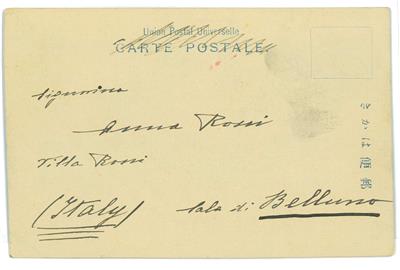 Union Postal Universelle
CARTE POSTALE.
Signorina
Anna Rossi
Villa Rossi
(Italy) Sala di Belluno
きかは便郵